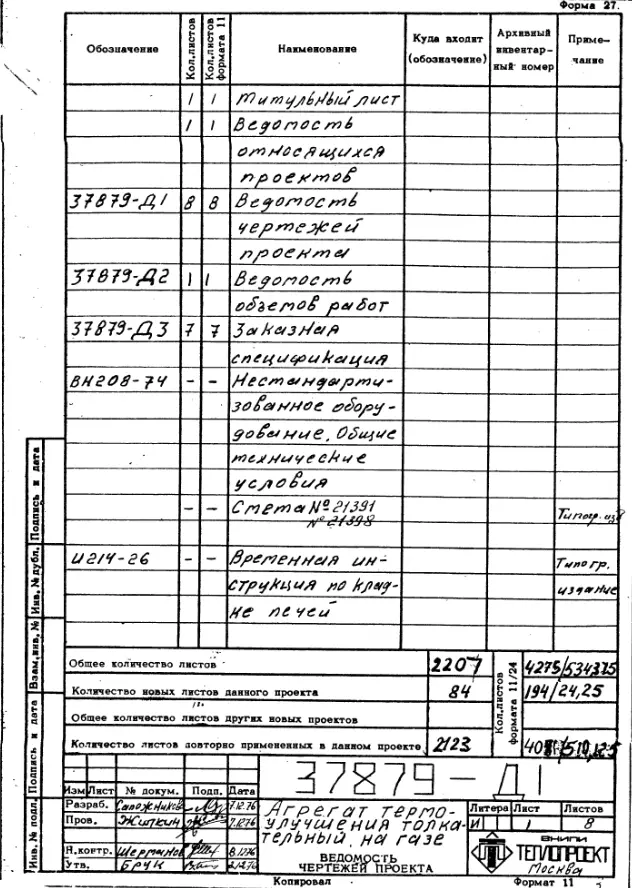 Форма 27.
Обозначение Кол.листов Кол.листов формата 11 Наименование Куда входит (обозначение) Архивный инвентарный номер Примечание
1 1 Титульный лист
1 1 Ведомость
относящихся
проектов
37879-Д1 8 8 Ведомость
чертежей
проекта
37879-Д2 1 1 Ведомость
объемов работ
37879-Д3 7 7 Заказная
спецификация
ВН208-74 – – Нестандарти-
зованное обору-
дование. Общие
технические
условия
– – Смета №21391 Типогр. изд
№21398
И214-26 – – Временная ин- Типогр.
струкция по клад- издание
ке печей
Общее количество листов 2207
Количество новых листов данного проекта 84 194/24,25
Общее количество листов других новых проектов
Количество листов повторно примененных в данном проекте 2123
Кол.листов формата 11/24
Инв. № подл. Подпись и дата Взам.инв. № Инв. № дубл. Подпись и дата
37879-Д1
Изм Лист № докум. Подп. Дата
Разраб. Сапожников 7.12.76
Пров. Житкин 7.12.76
Н.контр. Шерманов 8.12.76
Утв. Брук
Агрегат термо-
улучшения толка-
тельный на газе
ВЕДОМОСТЬ
ЧЕРТЕЖЕЙ ПРОЕКТА
Литера Лист Листов
И 1 8
ВНИПИ
ТЕПЛОПРОЕКТ
Москва
Копировал Формат 11